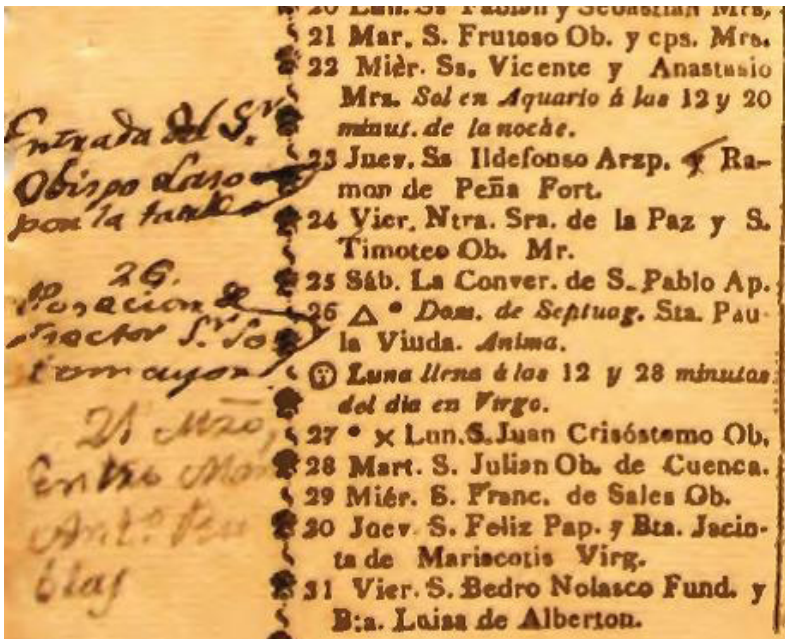 Entrada del Sr.
Obispo Laso
por la tarde
26.
Posecion de
Rector Sr. So
tomayor
21 Mzo,
Entro
Ant.o Ru
blas
20 Lun. Ss Fabian y Sebastian Mrs,
21 Mar. S. Frutoso Ob. y cps. Mrs.
22 Mièr. Ss. Vicente y Anastasio
Mrs. Sol en Aquario á las 12 y 20
minut. de la noche.
23 Juev. Ss Ildefonso Arzp. y Ra-
mon de Peña Fort.
24 Vier. Ntra. Sra. de la Paz y S.
Timoteo Ob. Mr.
25 Sáb. La Conver. de S. Pablo Ap.
26 △ • Dom. de Septuag. Sta. Pau-
la Viuda. Anima.
Luna llena á las 12 y 28 minutos
del dia en Virgo.
27 • × Lun. S. Juan Crisóstomo Ob.
28 Mart. S. Julian Ob. de Cuenca.
29 Miér. S. Franc. de Sales Ob.
30 Juev. S. Feliz Pap. y Bta. Jacin-
ta de Mariscotis Virg.
31 Vier. S. Bedro Nolasco Fund. y
B:a. Luisa de Alberton.